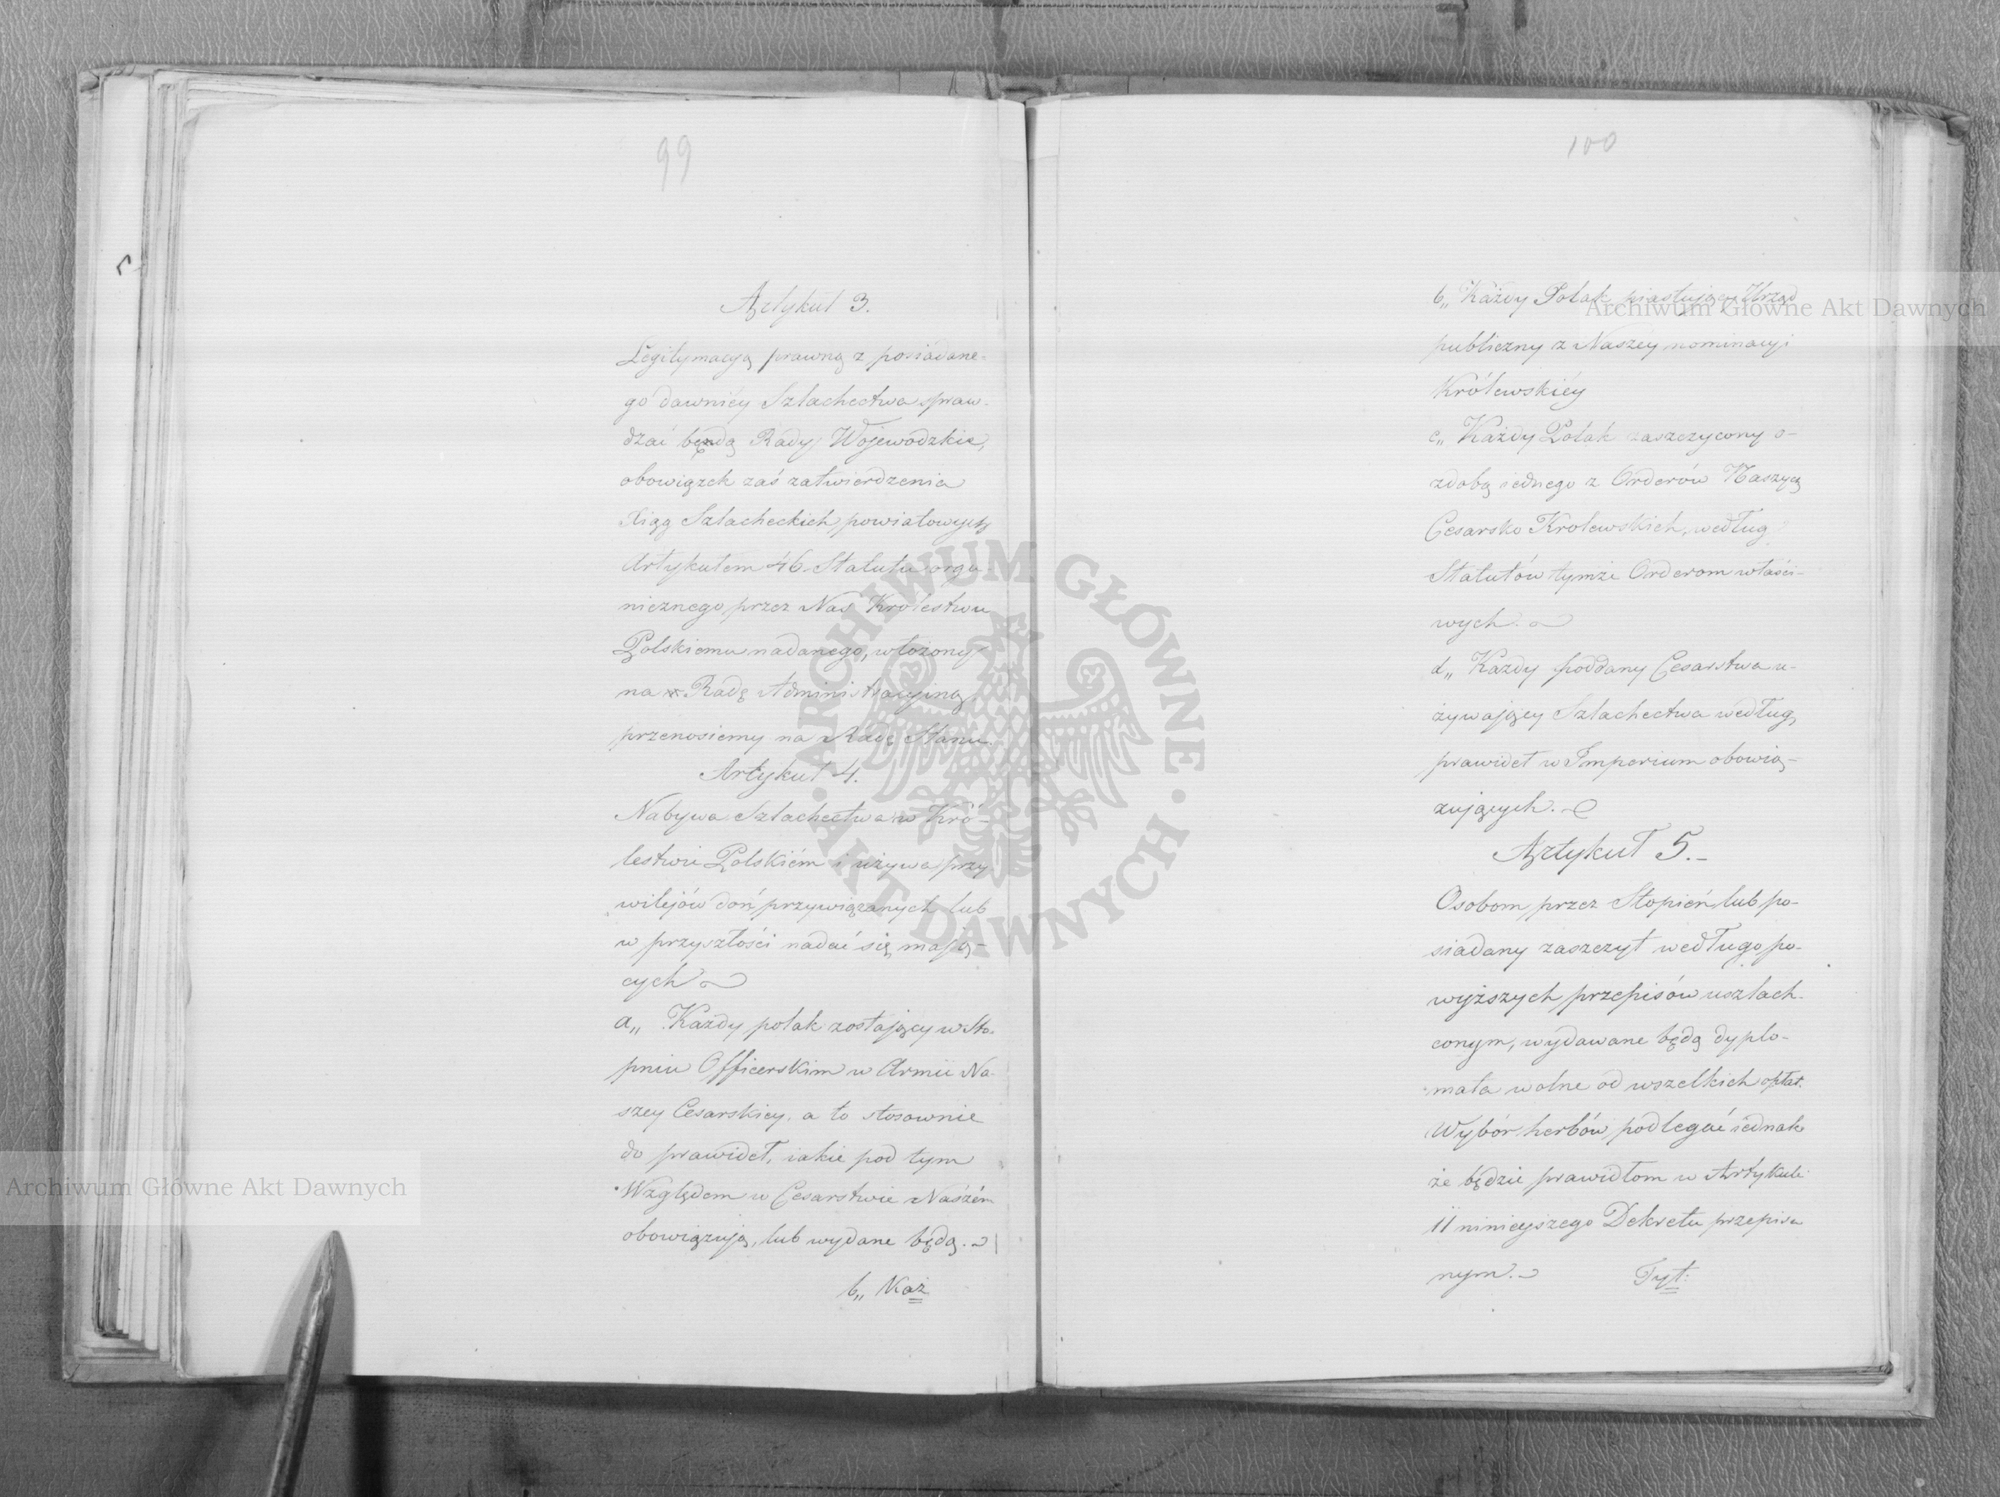 99
Artykuł 3.
Legitymacyą prawną z posiadane-
go dawniéy Szlachectwa spraw-
dzać będą Rady Wojewodzkie,
obowiązek zaś zatwierdzenia
Xiąg Szlacheckich powiatowych
Artykułem 46. Statutu orga-
nicznego przez Nas Królestwu
Polskiemu nadanego, włożony
na Radę Administracyiną
przenosiemy na Radę Stanu.
Artykuł 4.
Nabywa Szlachectwa w Kró-
lestwie Polskiém i używa przy
wilejów doń przywiązanych lub
w przyszłości nadać się mają-
cych
a,, Każdy polak zostający w Sto-
pniu Officerskim w Armii Na-
szey Cesarskiey, a to stosownie
do prawideł, iakie pod tym
Względem w Cesarstwie Naszém
obowiązują, lub wydane będą.
b,, Każ
100
b,, Każdy Polak piastujący Urząd
publiczny z Naszey nominacyi
Królewskiéy
c,, Każdy Polak zaszczycony o-
zdobą iednego z Orderów Naszych
Cesarsko Krolewskich, według
Statutów tymże Orderom właści-
wych.
d,, Kazdy poddany Cesarstwa u-
żywający Szlachectwa według
prawideł w Imperium obowią-
zujących.
Artykuł 5.
Osobom przez Stopień lub po-
siadany zaszczyt według po-
wyższych przepisów uszlach-
conym, wydawane będą dyplo-
mata wolne od wszelkich opłat.
Wybór herbów podlegać iednak
że będzie prawidłom w Artykule
11 ninieyszego Dekretu przepisa
nym. Tyt:
Archiwum Główne Akt Dawnych
Archiwum Główne Akt Dawnych
ARCHIWUM GŁÓWNE · AKT DAWNYCH ·